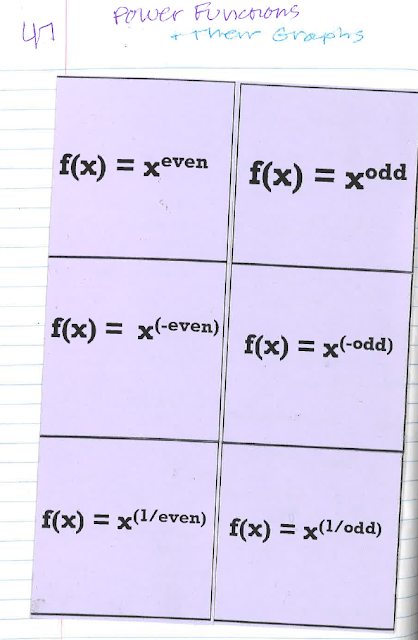 Power Functions
47 + Their Graphs
f(x) = x^even
f(x) = x^odd
f(x) = x^(-even)
f(x) = x^(-odd)
f(x) = x^(1/even)
f(x) = x^(1/odd)